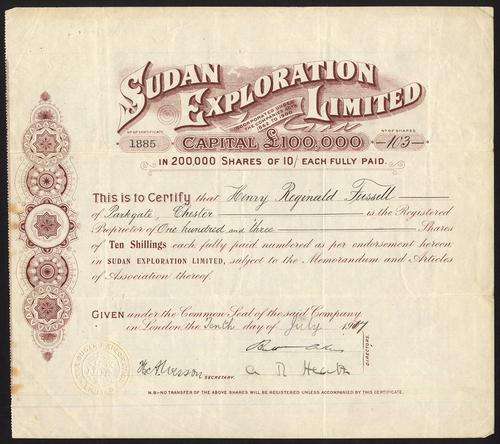 SUDAN EXPLORATION LIMITED
INCORPORATED UNDER
THE COMPANIES ACTS
1862 TO 1900
No OF CERTIFICATE
1885
CAPITAL £100,000
No OF SHARES
103
IN 200,000 SHARES OF 10/- EACH FULLY PAID
This is to Certify that Henry Reginald Fussell
of Parkgate, Chester is the Registered
Proprietor of One hundred and three Shares
of Ten Shillings each fully paid numbered as per endorsement hereon
in SUDAN EXPLORATION LIMITED, subject to the Memorandum and Articles
of Association thereof.
GIVEN under the Common Seal of the said Company
in London, the Tenth day of July 19
DIRECTORS.
SECRETARY.
N.B-NO TRANSFER OF THE ABOVE SHARES WILL BE REGISTERED UNLESS ACCOMPANIED BY THIS CERTIFICATE.